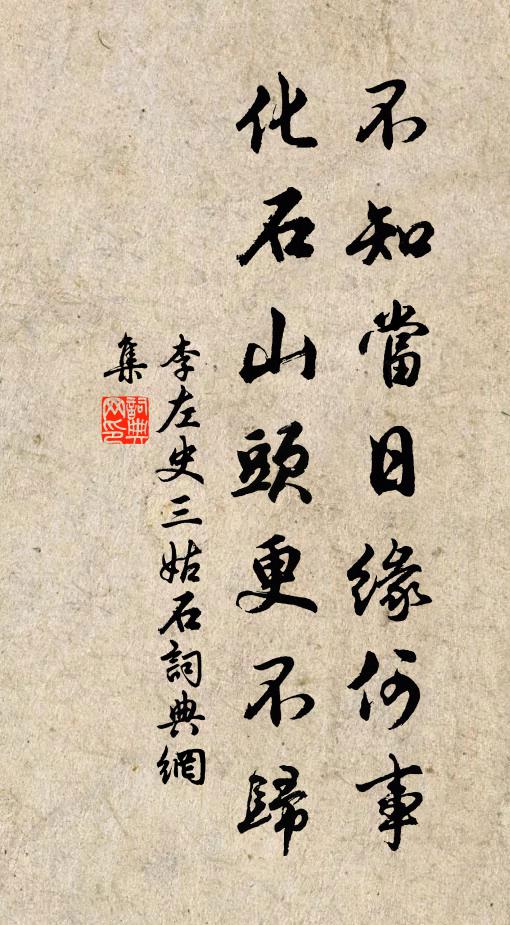 不知當日緣何事
化石山頭更不歸
李左史三姑石詞典網
集
詞典網印